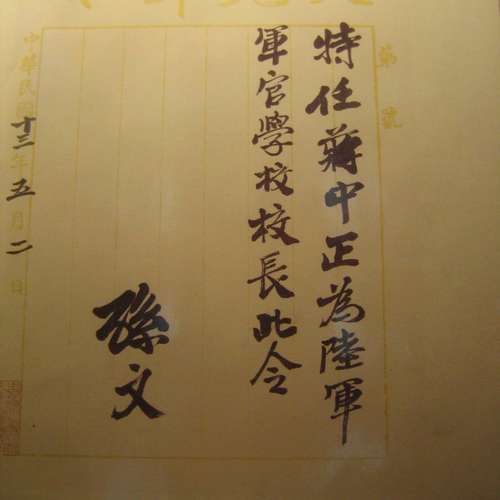 第 號
特任蔣中正為陸軍
軍官學校校長此令
孫文
中華民國十三年五月二日